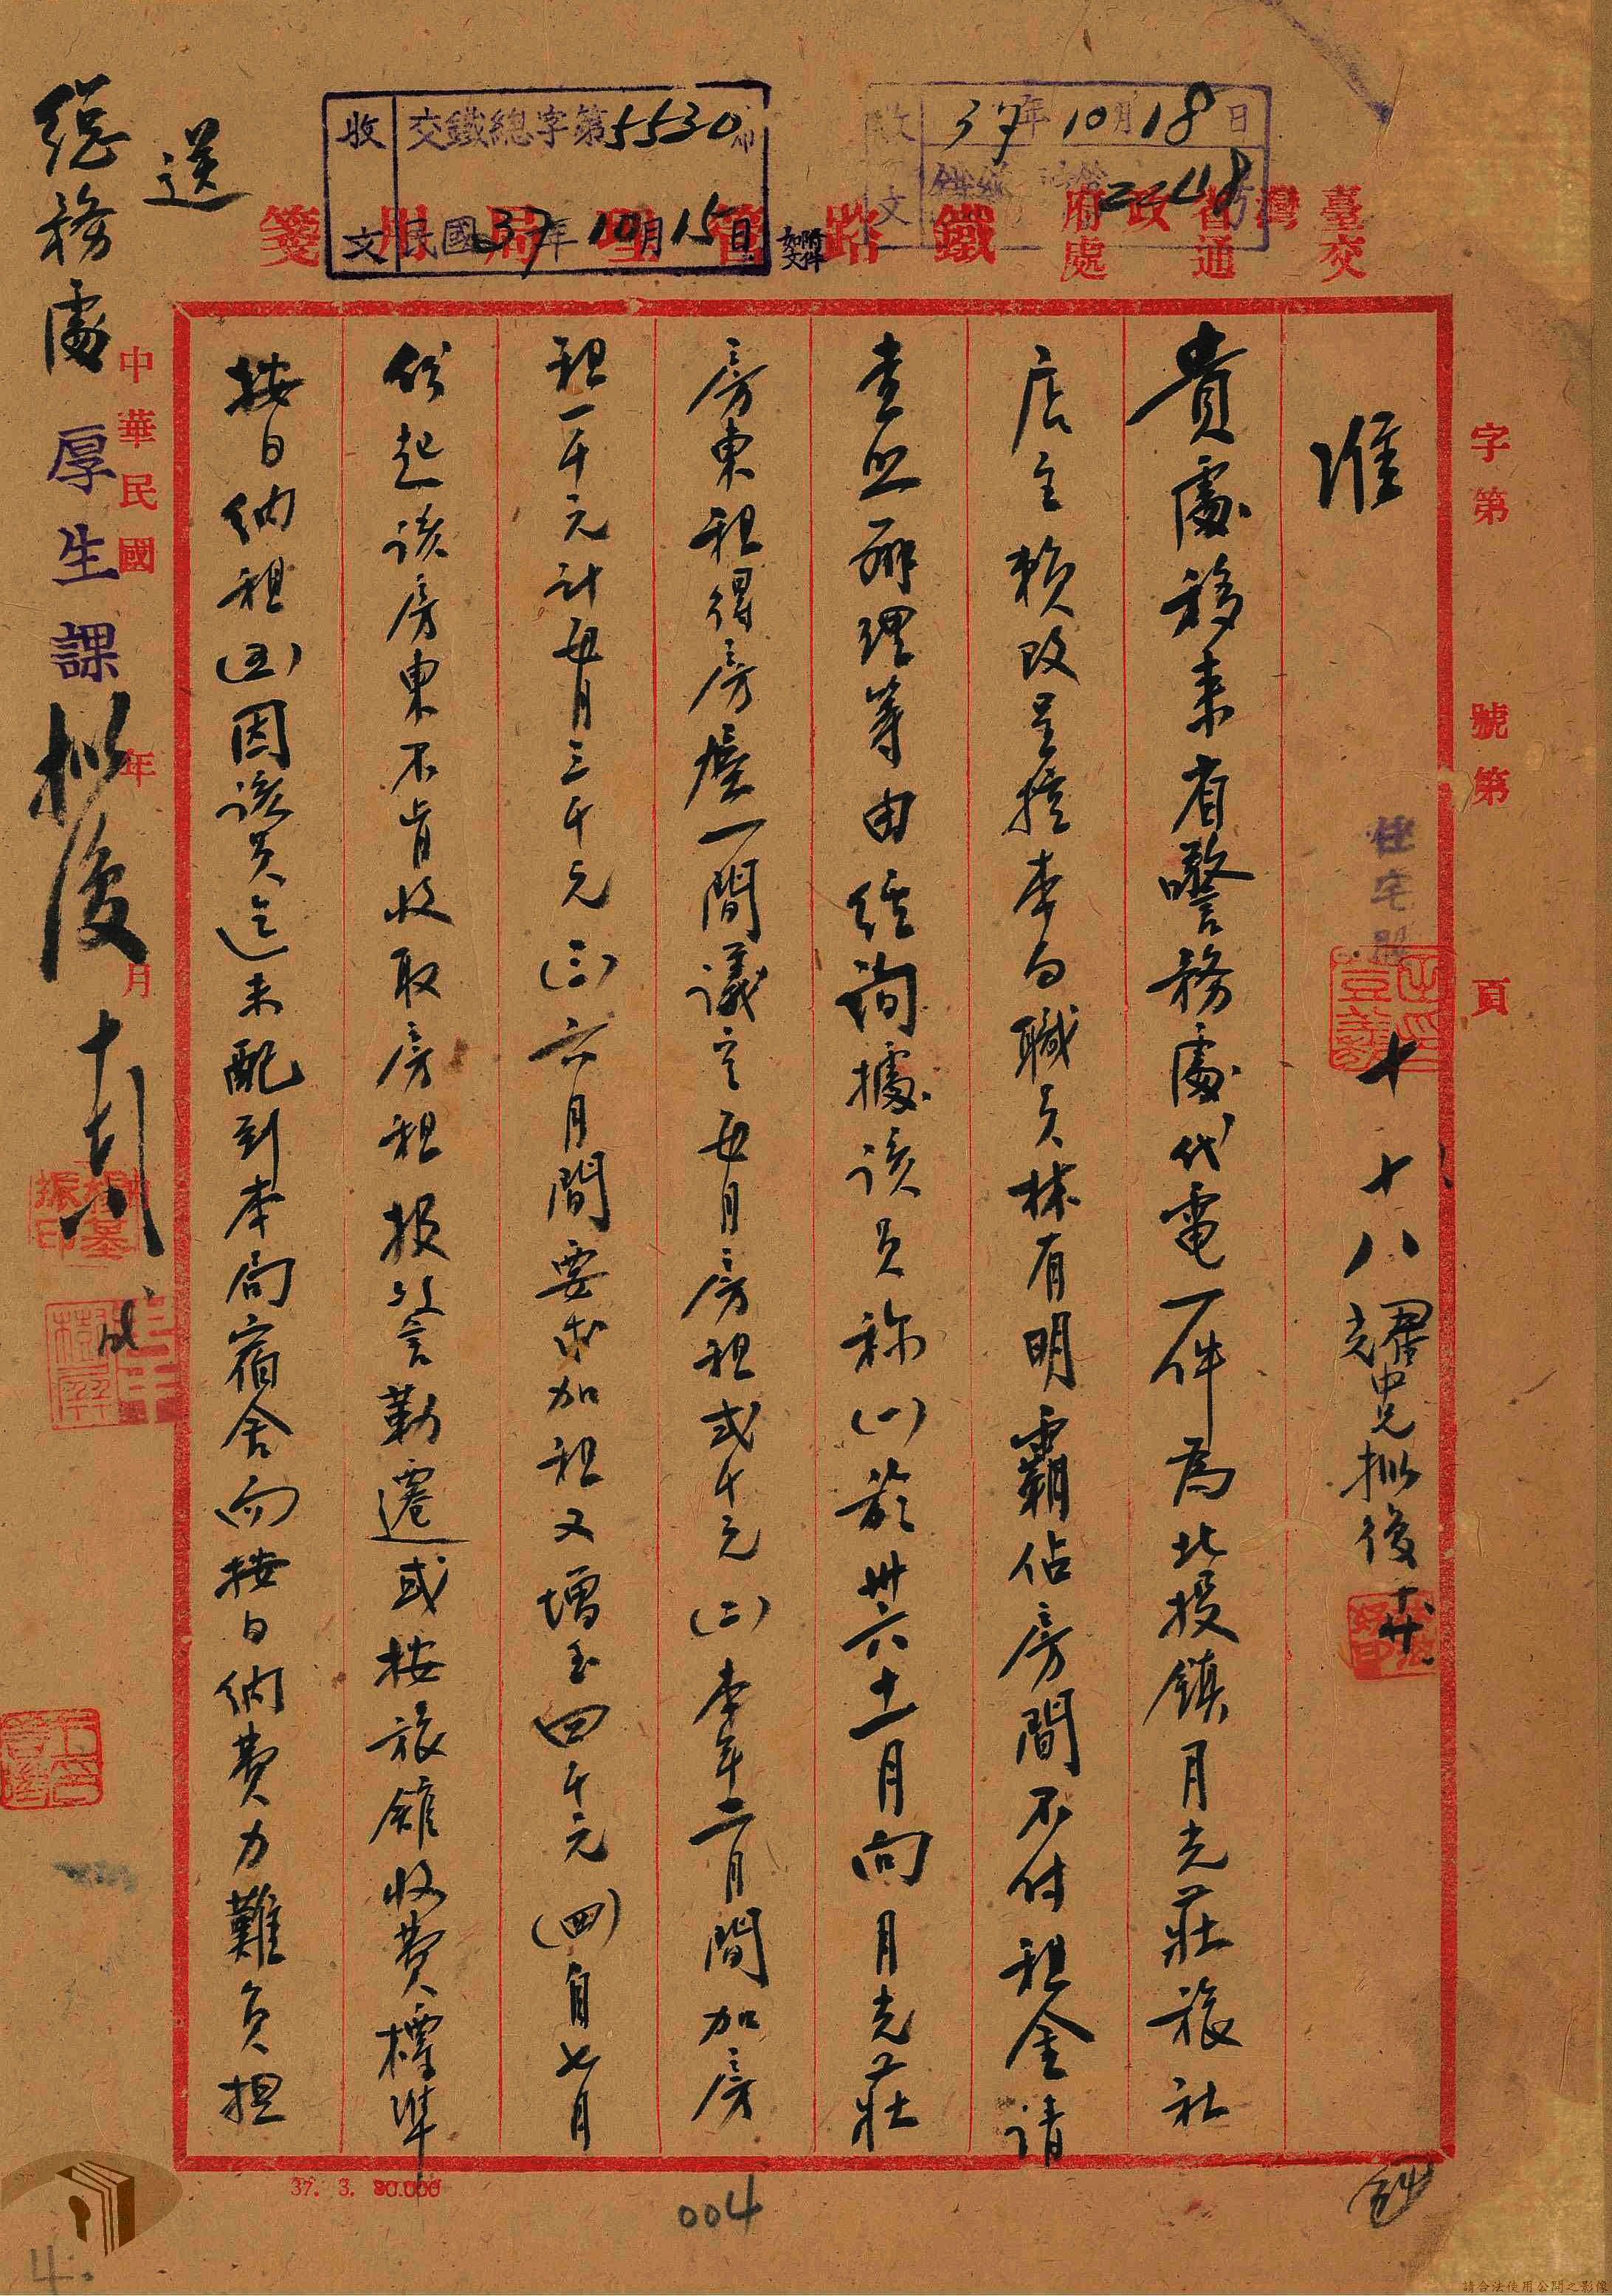 臺灣省政府
交通處
鐵路管理局用箋
收文 交鐵總字第5530號
民國37年10月15日
附件如文
收文 37年10月18日
2248
字第 號第 頁
住宅股
十、十八
准
貴處移來省警務處代電一件為北投鎮月光莊旅社
店主賴改呈控本局職員林有明霸佔房間不付租金請
查照辦理等由經詢據該員称(一)於卅六十一月向月光莊
房東租得房屋一間議定每月房租弍千元(二)本年二月間加房
租一千元計每月三千元(三)六月間要求加租又增至四千元(四)自七月
份起該房東不肯收取房租报以警勒遷或按旅館收費標準
按日納租(五)因該員迄未配到本局宿舍而按日納費力難負担
中華民國 年 月
送
總務處
厚生課
拟後
37. 3. 80.000
004
4.
請合法使用公開之影像